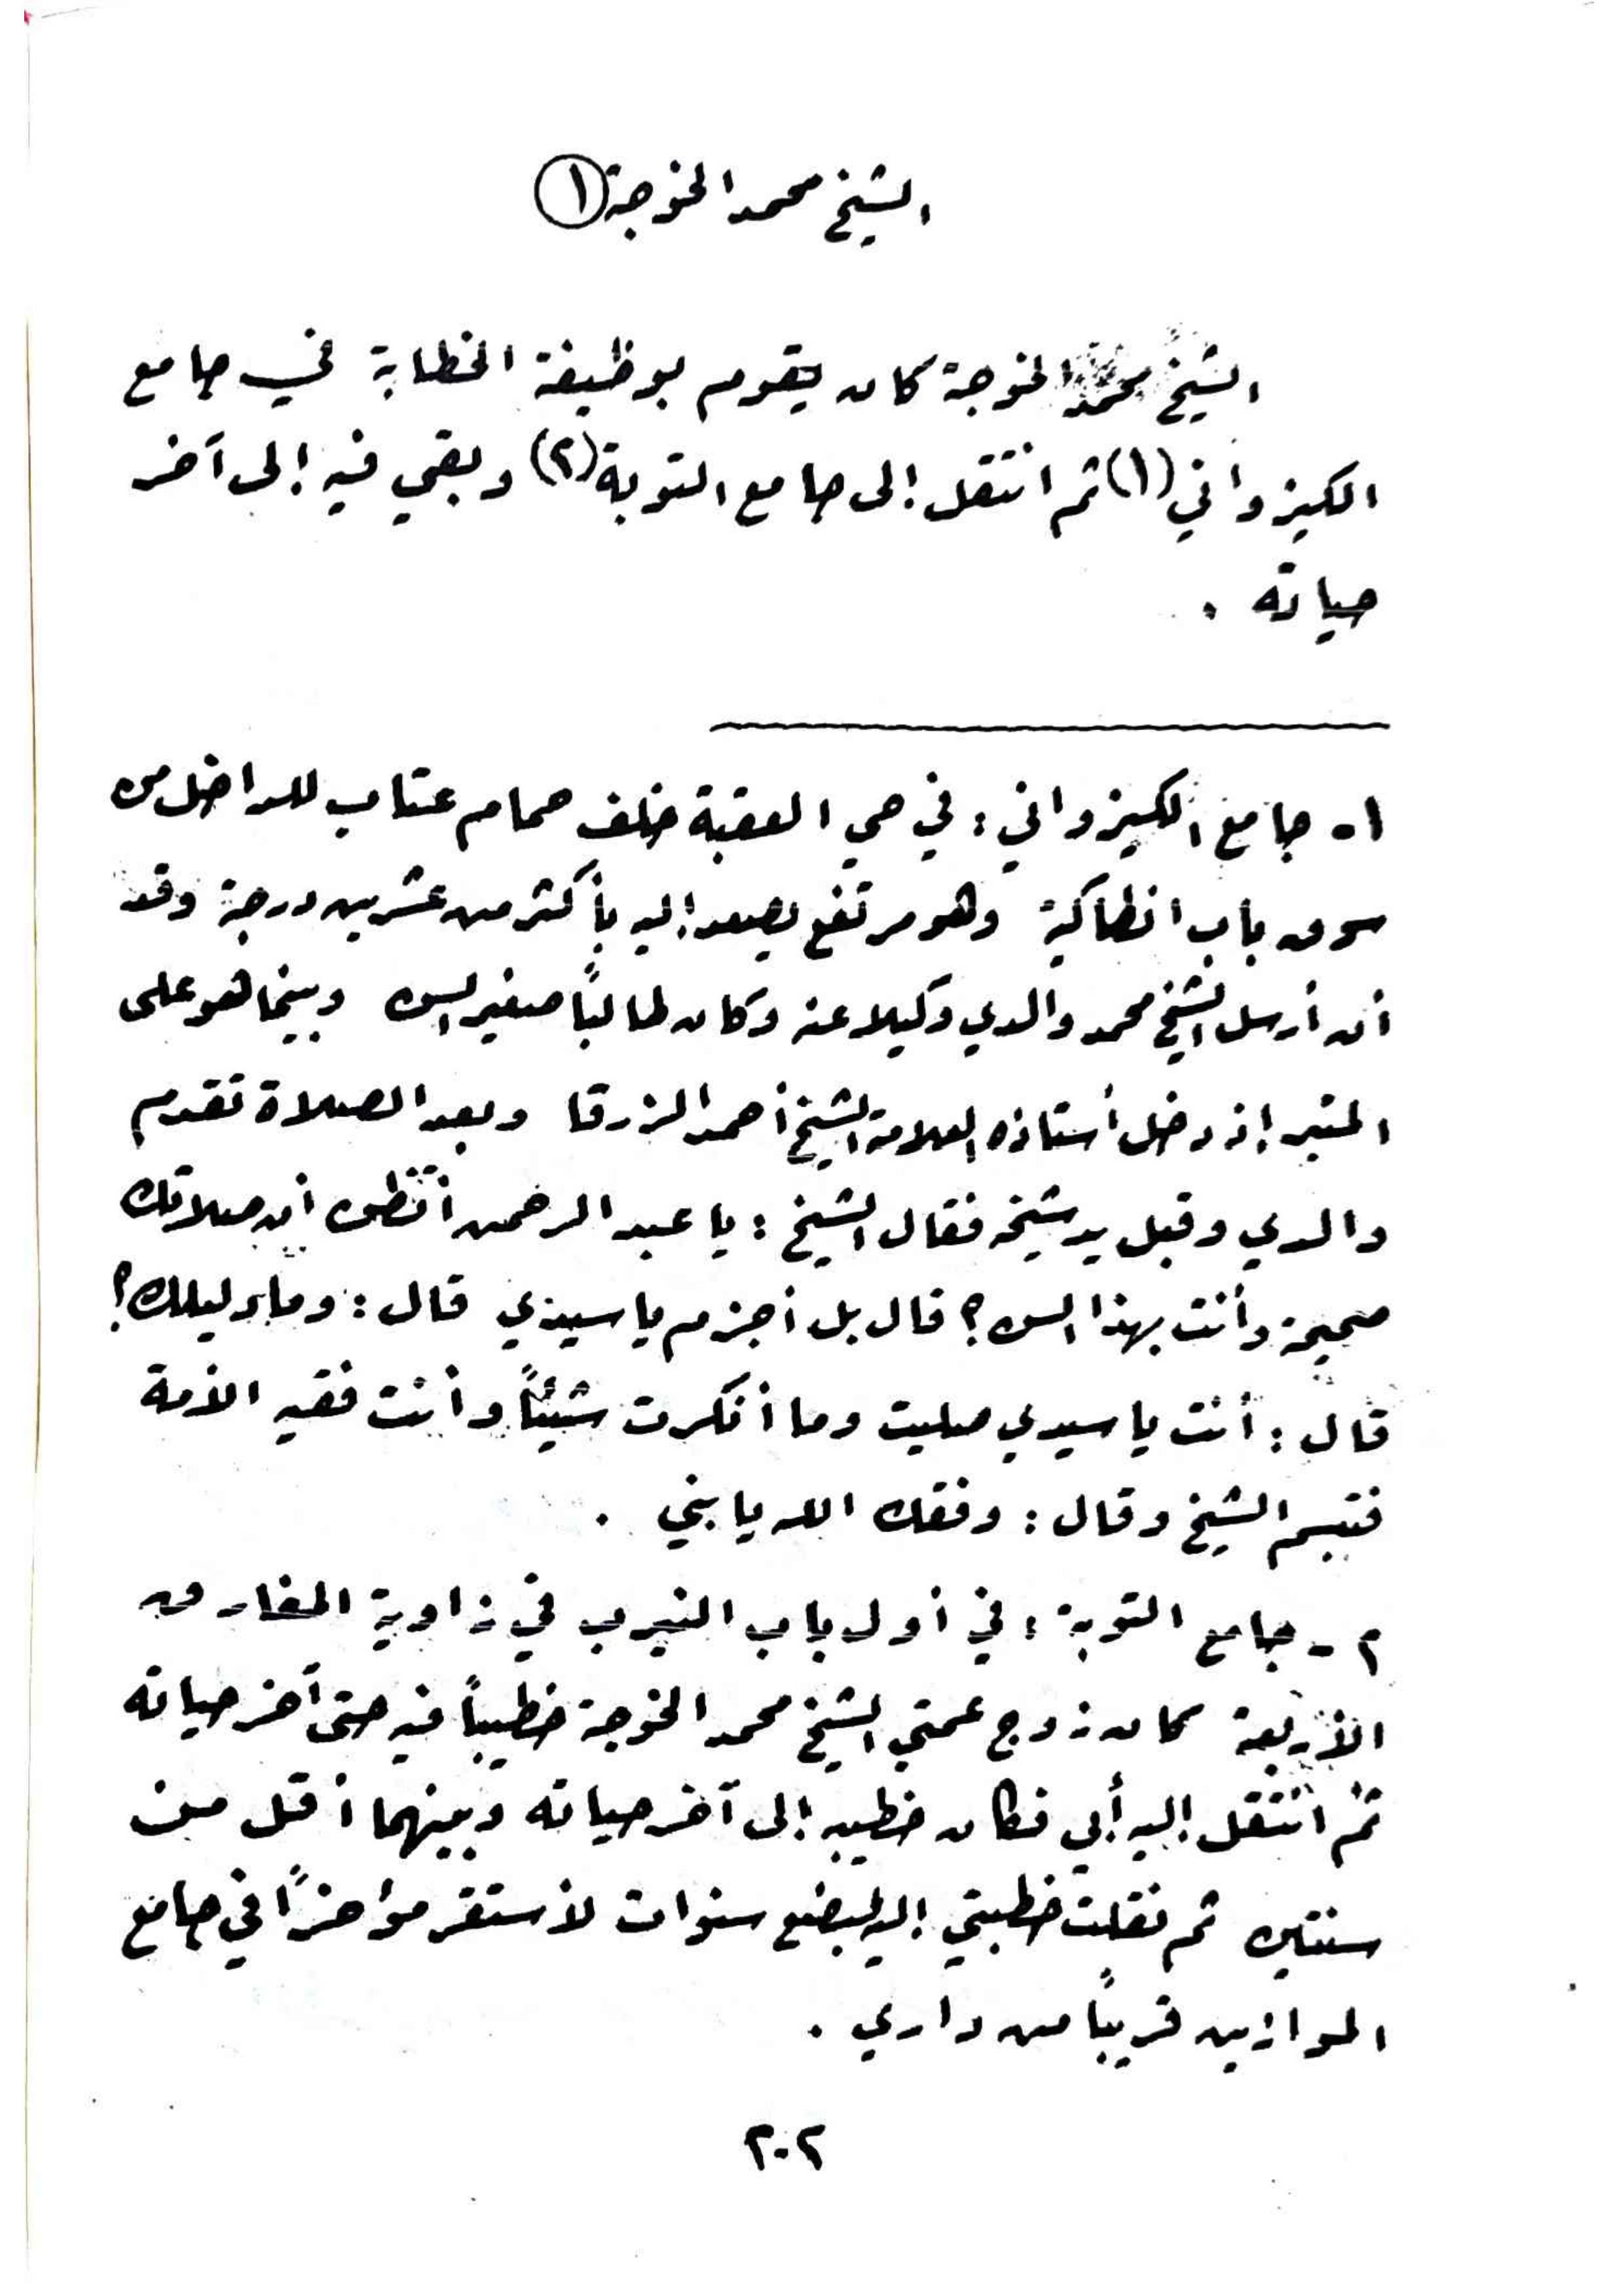 الشيخ محمد الخوجة ①
الشيخ محمد الخوجة كان يقوم بوظيفة الخطابة في جامع
الكيزواني (١) ثم انتقل إلى جامع التوبة (٢) وبقي فيه إلى آخر
حياته .
١- جامع الكيزواني : في حي العقبة خلف حمام عتاب للداخل من
سوق باب انطاكية وهو مرتفع يصعد إليه بأكثر من عشرين درجة وقد
أن أرسل الشيخ محمد والدي وكيلا عنه وكان طالباً صغير السن وبينما هو على
المنبر إذ دخل أستاذه العلامة الشيخ أحمد الزرقا وبعد الصلاة تقدم
والدي وقبل يد شيخه فقال الشيخ : يا عبد الرحمن أتظن أن صلاتك
صحيحة وأنت بهذا السن ؟ قال بل أجزم يا سيدي قال : وما دليلك ؟
قال : أنت يا سيدي صليت وما أنكرت شيئاً وأنت فقيه الأمة
فتبسم الشيخ وقال : وفقك الله يا بني .
٢- جامع التوبة : في أول باب النيرب في زاوية المفارق
الأربعة كان زوج عمتي الشيخ محمد الخوجة خطيباً فيه حتى آخر حياته
ثم انتقل إليه أبي فكان خطيبه إلى آخر حياته وبينهما أقل من
سنتين ثم نقلت خطبتي إليه لبضع سنوات لأستقر مؤخراً في جامع
الموازيين قريباً من داري .
٢٠٢